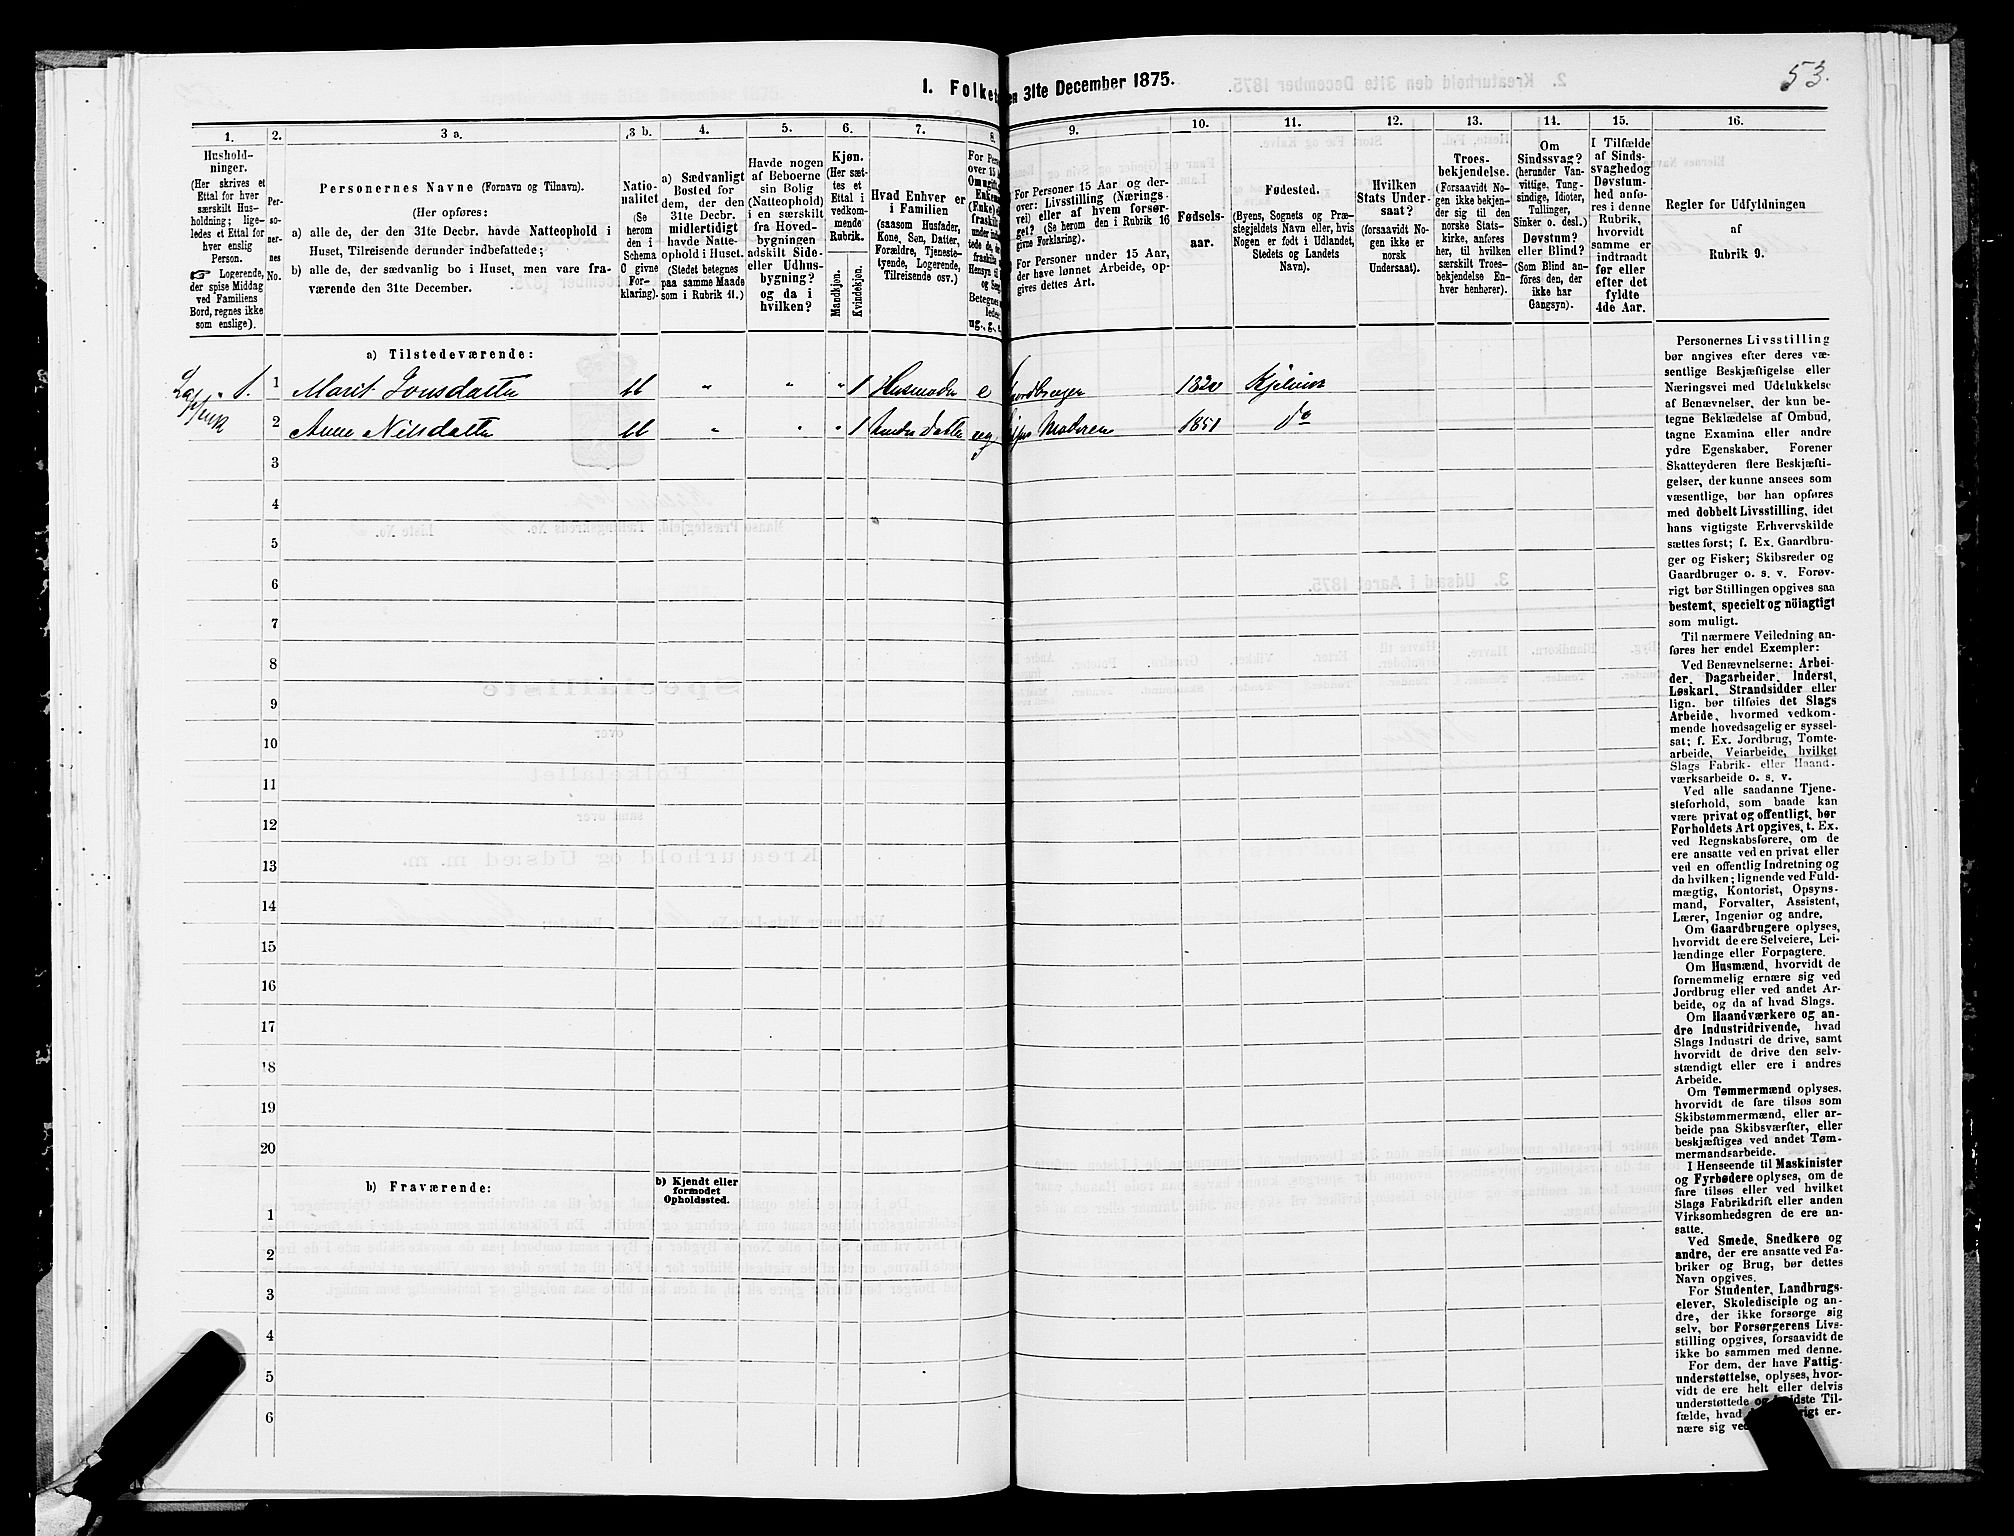 53.
1. Folket en 31te December 1875.
1.
2.
3 a.
3 b.
4.
5.
6.
7.
8.
9.
10.
11.
12.
13.
14.
15.
16.
Hushold-
ninger.
(Her skrives et
Ettal for hver
særskilt Hus-
holdning; lige-
ledes et Ettal for
hver enslig
Person.
☞ Logerende,
der spise Middag
ved Familiens
Bord, regnes ikke
som enslige).
Per-
so-
ner-
nes
No.
Personernes Navne (Fornavn og Tilnavn).
(Her opføres:
a) alle de, der den 31te Decbr. havde Natteophold i
Huset, Tilreisende derunder indbefattede;
b) alle de, der sædvanlig bo i Huset, men vare fra-
værende den 31te December.
Natio-
nalitet
(Se
herom
den i
Schema
O givne
For-
klaring).
a) Sædvanligt
Bosted for
dem, der den
31te Decbr.
midlertidigt
havde Natte-
ophold i Huset.
(Stedet betegnes
paa samme Maade
som i Rubrik 11.)
Havde nogen
af Beboerne
sin Bolig
(Natteophold)
i en særskilt
fra Hoved-
bygningen
adskilt Side-
eller Udhus-
bygning?
og da i
hvilken?
Kjøn.
(Her sæt-
tes et
Ettal i
vedkom-
mende
Rubrik.
Mandkjøn.
Kvindekjøn.
Hvad Enhver er
i Familien
(saasom Husfader,
Kone, Søn, Datter,
Forældre, Tjeneste-
tyende, Logerende,
Tilreisende osv.)
For Personer 15 Aar og der-
over: Livsstilling (Nærings-
vei) eller af hvem forsør-
get? (Se herom den i Rubrik 16
givne Forklaring).
For Personer under 15 Aar,
der have lønnet Arbeide, op-
gives dettes Art.
Fødsels-
aar.
Fødested.
(Byens, Sognets og Præ-
stegjeldets Navn eller, hvis
Nogen er født i Udlandet,
Stedets og Landets
Navn).
Hvilken
Stats Under-
saat?
(forsaavidt No-
gen ikke er
norsk
Undersaat).
Troes-
bekjendelse.
(Forsaavidt No-
gen ikke bekjen-
der sig til den
norske Stats-
kirke, anføres
her, til hvilken
særskilt Troes-
bekjendelse En-
hver henhører).
Om
Sindssvag?
(herunder Van-
vittige, Tung-
sindige, Idioter,
Tullinger,
Sinker o. desl.)
Døvstum?
eller Blind?
(Som Blind an-
føres den, der
ikke har
Gangsyn).
I Tilfælde
af Sinds-
svaghed og
Døvstum-
hed anfø-
res i denne
Rubrik,
hvorvidt
samme er
indtraadt
før eller
efter det
fyldte
4de Aar.
Regler for Udfyldningen
af
Rubrik 9.
a) Tilstedeværende:
1. 1 Marit Jonsdatter " " " 1 Husmoder e 182 Kjelvik
2 Anne Nilsdatter " " " 1 datter ug. Moderen 1851 do
3
4
5
6
7
8
9
10
11
12
13
14
15
16
17
18
19
20
b) Fraværende:
b) Kjendt eller
formodet
Opholdssted.
1
2
3
4
5
6
Personernes Livsstilling
bør angives efter deres væ-
sentlige Beskjæftigelse eller
Næringsvei med Udelukkelse
af Benævnelser, der kun be-
tegne Beklædelse af Ombud,
tagne Examina eller andre
ydre Egenskaber. Forener
Skatteyderen flere Beskjæfti-
gelser, der kunne ansees som
væsentlige, bør han opføres
med dobbelt Livsstilling, idet
hans vigtigste Erhvervskilde
sættes først; f. Ex. Gaardbru-
ger og Fisker; Skibsreder og
Gaardbruger o. s. v. Forøv-
rigt bør Stillingen opgives saa
bestemt, specielt og nöiagtigt
som muligt.
Til nærmere Veiledning an-
føres her endel Exempler:
Ved Benævnelserne: Arbei-
der, Dagarbeider, Inderst,
Løskarl, Strandsidder eller
lign. bør tilføies det Slags
Arbeide, hvormed vedkom-
mende hovedsagelig er syssel-
sat; f. Ex. Jordbrug, Tomte-
arbeide, Veiarbeide, hvilket
Slags Fabrik- eller Haand-
værksarbeide o. s. v.
Ved alle saadanne Tjene-
steforhold, som baade kan
være privat og offentligt, bør
Forholdets Art opgives, t. Ex.
ved Regnskabsførere, om de
ere ansatte ved en privat eller
ved en offentlig Indretning og
da hvilken; lignende ved Fuld-
mægtig, Kontorist, Opsyns-
mand, Forvalter, Assistent,
Lærer, Ingeniør og andre.
Om Gaardbrugere oplyses,
hvorvidt de ere Selveiere, Lei-
lændinge eller Forpagtere.
Om Husmænd, hvorvidt de
fornemmelig ernære sig ved
Jordbrug eller ved andet Ar-
beide, og da af hvad Slags.
Om Haandværkere og an-
dre Industridrivende, hvad
Slags Industri de drive, samt
hvorvidt de drive den selv-
stændigt eller ere i andres
Arbeide.
Om Tømmermænd oplyses,
hvorvidt de fare tilsøs som
Skibstømmermænd, eller ar-
beide paa Skibsværfter, eller
beskjæftiges ved andet Tøm-
mermandsarbeide.
I Henseende til Maskinister
og Fyrbødere oplyses, om de
fare tilsøs eller ved hvilket
Slags Fabrikdrift eller anden
Virksomhedsgren de ere an-
satte.
Ved Smede, Snedkere og
andre, der ere ansatte ved Fa-
briker og Brug, bør dettes
Navn opgives.
For Studenter, Landbrugs-
elever, Skoledisciple og an-
dre, der ikke forsørge sig
selv, bør Forsørgerens Livs-
stilling opgives, forsaavidt de
ikke bo sammen med denne.
For dem, der have Fattig-
understøttelse, oplyses, hvor-
vidt de ere helt eller delvis
understøttede og